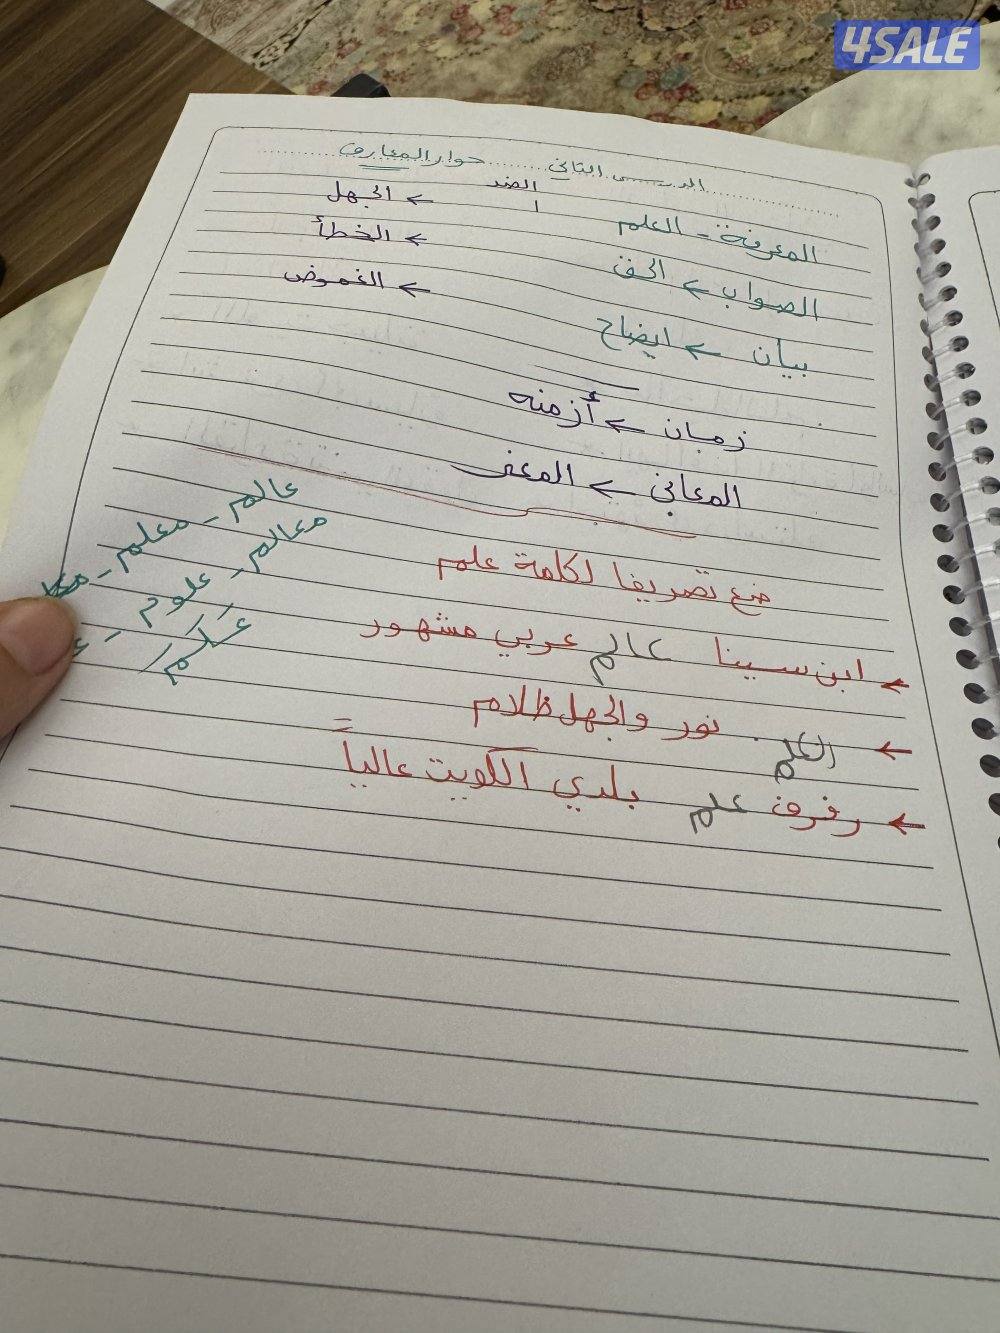 4SALE
الدرس الثاني حوار المعارف
الضد
المعرفة - العلم ← الجهل
الصواب ← الحق ← الخطأ
بيان ← ايضاح ← الغموض
زمان ← أزمنه
المعاني ← المعنى
عالم - معلم -
معالم - علوم -
عَلَم
ضع تصريفا لكلمة علم
← ابن سينا عالم عربي مشهور
← العلم نور والجهل ظلام
← رفرف علم بلدي الكويت عالياً